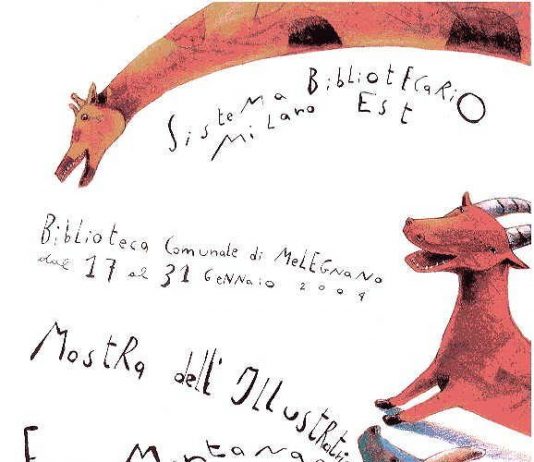 Sistema BibliotEcaRiO
Milano Est
Biblioteca Comunale di MeLEGNaNO
dal 17 al 31 GeNNaio
MostRa dell'ILLustRat